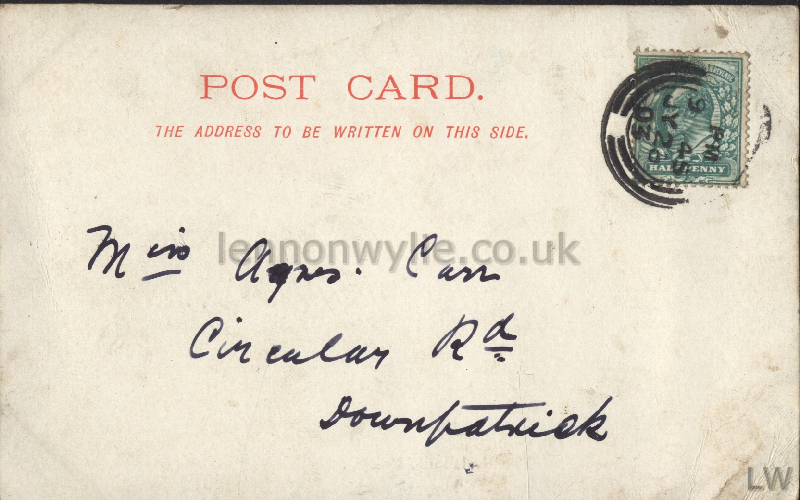 POST CARD.
THE ADDRESS TO BE WRITTEN ON THIS SIDE.
9 45 PM
JY 2
03
HALFPENNY
lennonwylie.co.uk
Miss Agnes. Carr
Circular Rd
Downpatrick
LW